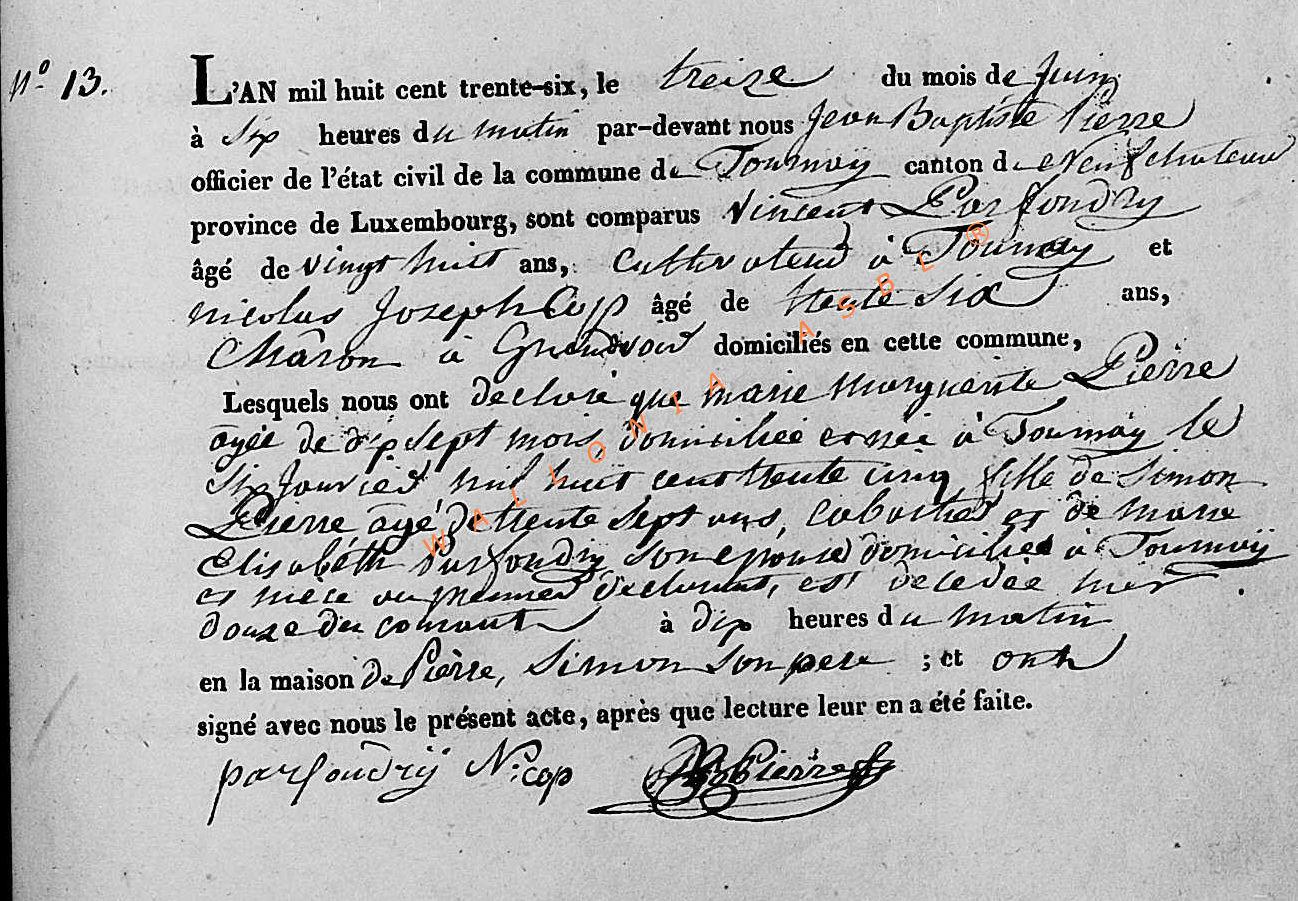 N° 13.
L'AN mil huit cent trente-six, le treize du mois de Juin
à Six heures du matin par-devant nous Jean Baptiste Pierre
officier de l'état civil de la commune de Tournay canton de Neufchateau
province de Luxembourg, sont comparus Vincent Parfondry
âgé de vingt huit ans, Cultivateur à Tournay et
nicolas Joseph Cop âgé de trente Six ans,
Charon à Grandvoir domiciliés en cette commune,
Lesquels nous ont declaré que marie marguerite Pierre
agée de dix sept mois, domiciliée et née à Tournay le
Six Janvier mil huit cent trente cinq fille de Simon
Pierre agé de trente sept ans, Cabartier et de marie
Elisabéth Parfondry Son epouse domiciliés à Tournaÿ
et niéce au premier declarant, est decedée hier
douze du courant à dix heures du matin
en la maison de Pierre, Simon Son pere ; et ont
signé avec nous le présent acte, après que lecture leur en a été faite.
parfondrÿ N: cop JBPierre
WALLONIA ASBL ®